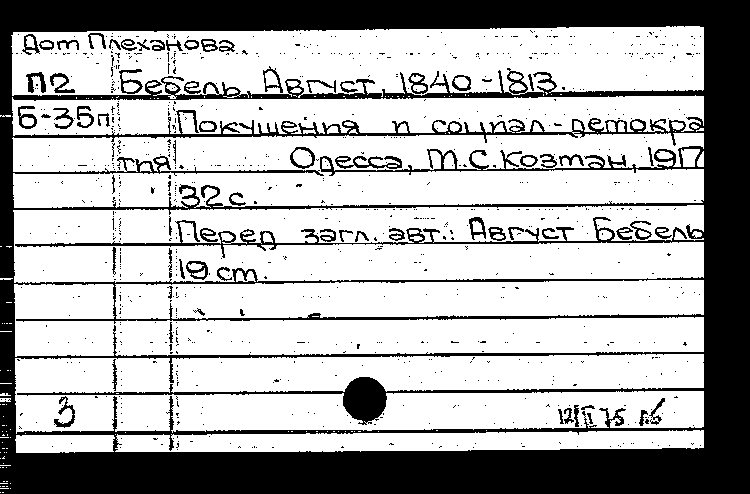 Дом Плеханова.
П2 Бебель, Август, 1840-1813.
Б-35п Покушения и социал-демокра
тия. Одесса, М.С.Козман, 1917
32 с.
Перед загл. авт.: Август Бебель
19 cm.
3 12/II 75